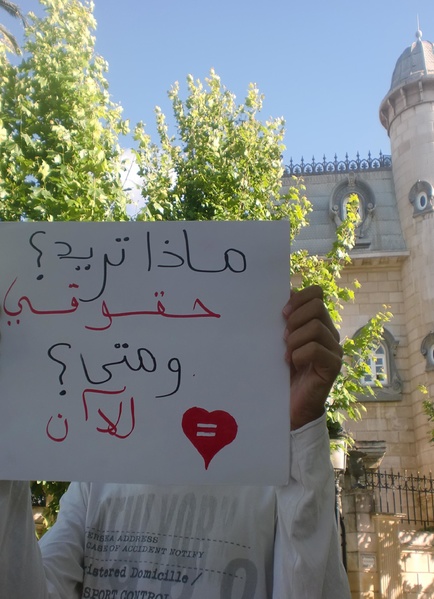 ماذا تريد؟
حقوقي
ومتى؟
للآن
=
ERSEA ADDRESS
CASE OF ACCIDENT NOTIFY
istered Domicile /
SPORT CONTROL